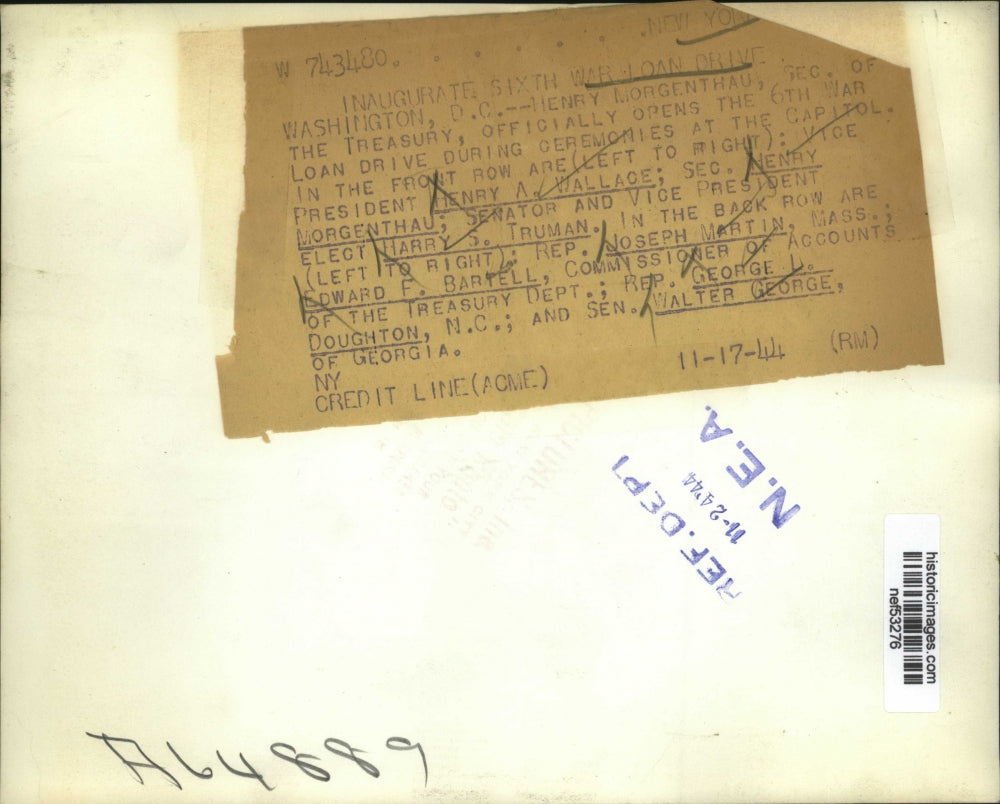 NEW YORK
W 743480. . . . . . .
INAUGURATE SIXTH WAR LOAN DRIVE
WASHINGTON, D.C.--HENRY MORGENTHAU, SEC. OF
THE TREASURY, OFFICIALLY OPENS THE 6TH WAR
LOAN DRIVE DURING CEREMONIES AT THE CAPITOL.
IN THE FRONT ROW ARE (LEFT TO RIGHT): VICE
PRESIDENT HENRY A. WALLACE; SEC. HENRY
MORGENTHAU; SENATOR AND VICE PRESIDENT
ELECT HARRY S. TRUMAN. IN THE BACK ROW ARE
(LEFT TO RIGHT): REP. JOSEPH MARTIN, MASS.;
EDWARD F. BARTELL, COMMISSIONER OF ACCOUNTS
OF THE TREASURY DEPT.; REP. GEORGE L.
DOUGHTON, N.C.; AND SEN. WALTER GEORGE,
OF GEORGIA.
NY
CREDIT LINE (ACME) 11-17-44 (RM)
REF. DEPT
11-24'44
N.E.A.
historicimages.com
nef53276
A64889